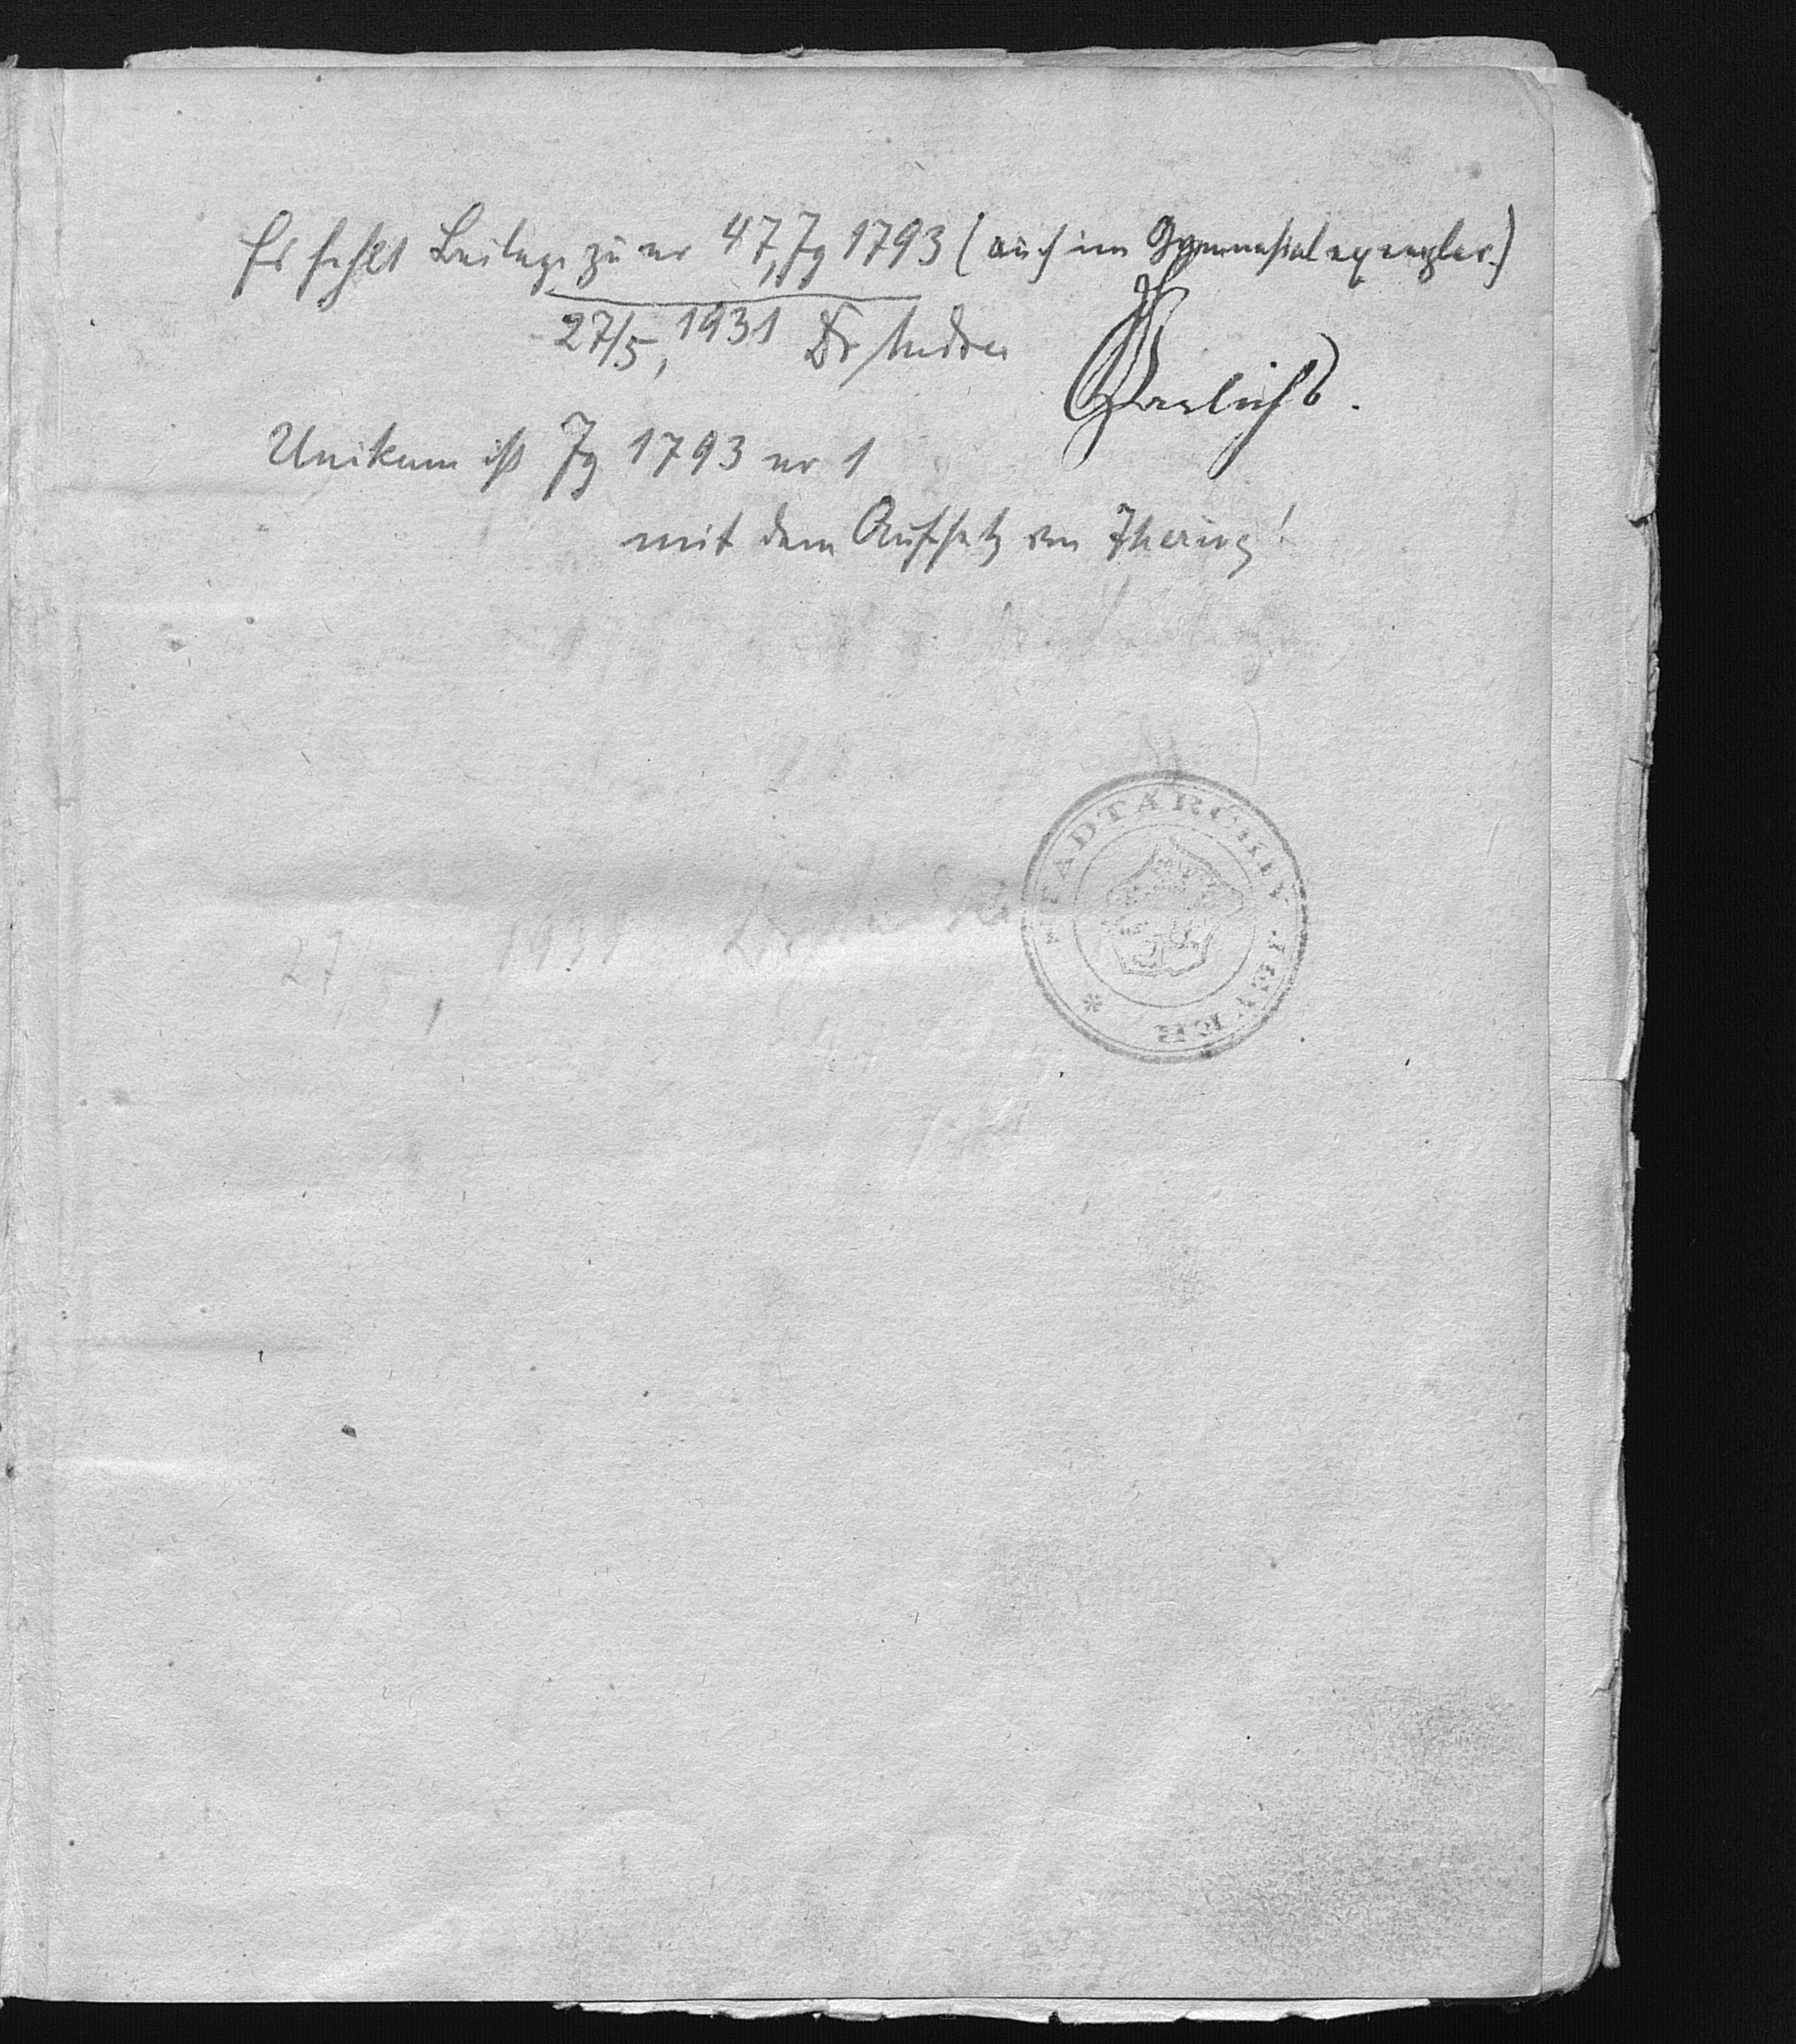 Es fehlt Beilage zu nr 47, Jg 1793 (auch im Gymnasialexemplar.)
27/5, 1931 Dr Andree
Unikum ist Jg 1793 nr 1
mit dem Aufsatz von Ihering!
STADTARCHIV JEVER
27/5, 1931